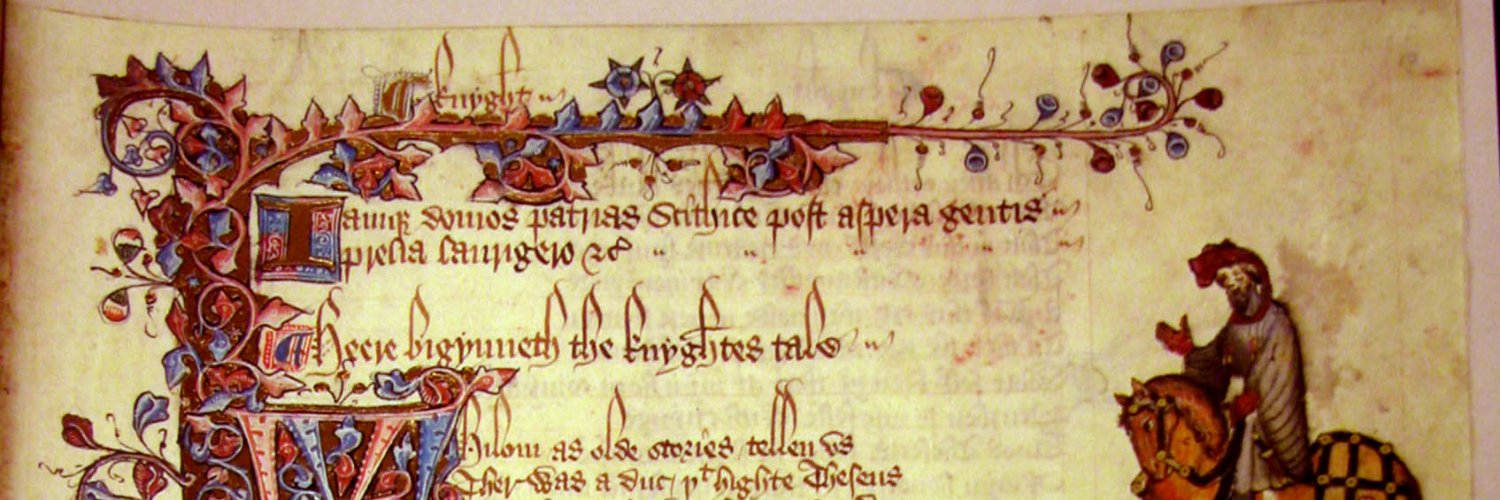 ¶ Knyght
Iamqꝫ domos patrias Scithice post aspera gentis
prelia laurigero ⁊cͣ
¶ Heere bigynneth the knyghtes tale
Whilom as olde stories tellen vs
Ther was a duc þͭ highte Theseus